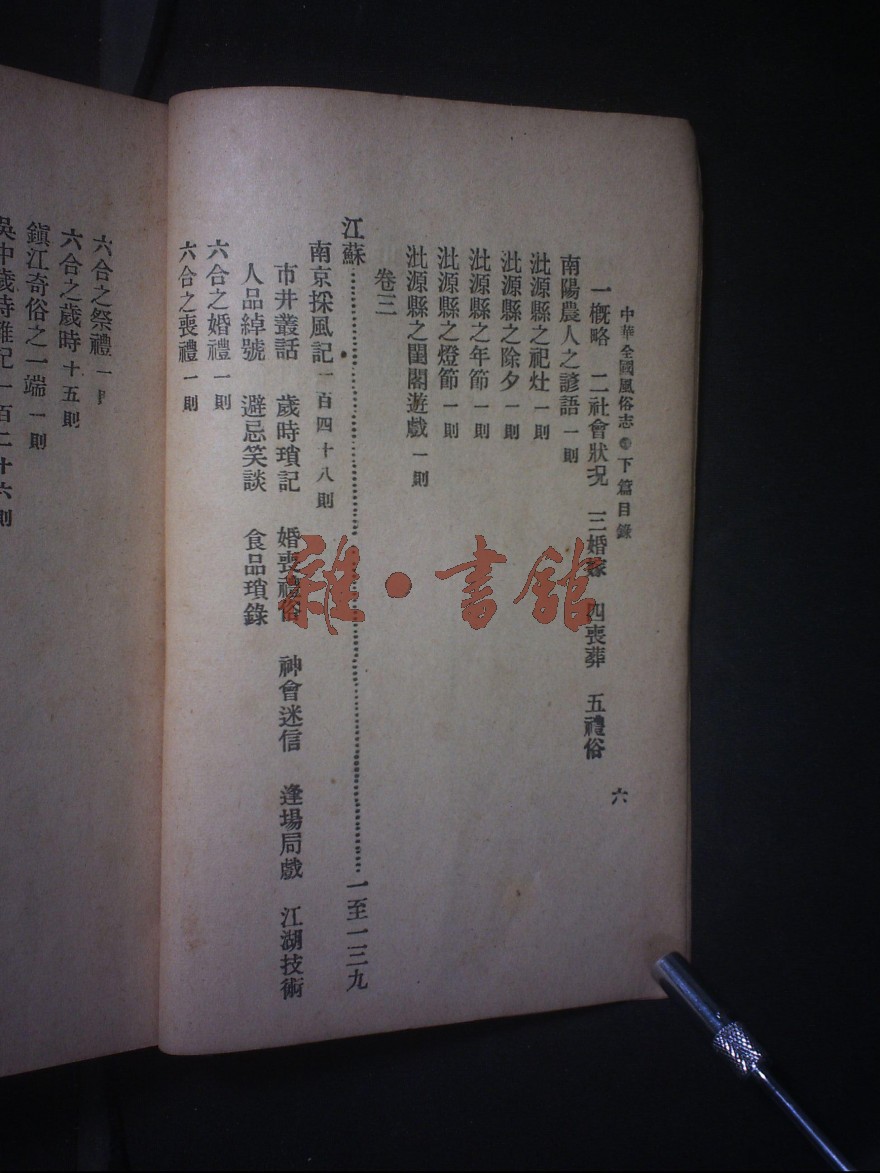 中華全國風俗志 下篇目錄 六
一概略 二社會狀況 三婚嫁 四喪葬 五禮俗
南陽農人之諺語一則
沘源縣之祀灶一則
沘源縣之除夕一則
沘源縣之年節一則
沘源縣之燈節一則
沘源縣之閨閣遊戲一則
卷三
江蘇……一至一三九
南京採風記一百四十八則
市井叢話 歲時瑣記 婚喪禮俗 神會迷信 逢場局戲 江湖技術
人品綽號 避忌笑談 食品瑣錄
六合之婚禮一則
六合之喪禮一則
六合之祭禮一
六合之歲時十五則
鎭江奇俗之一端一則
吳中歲時雜記一百二十六則
雜·書館